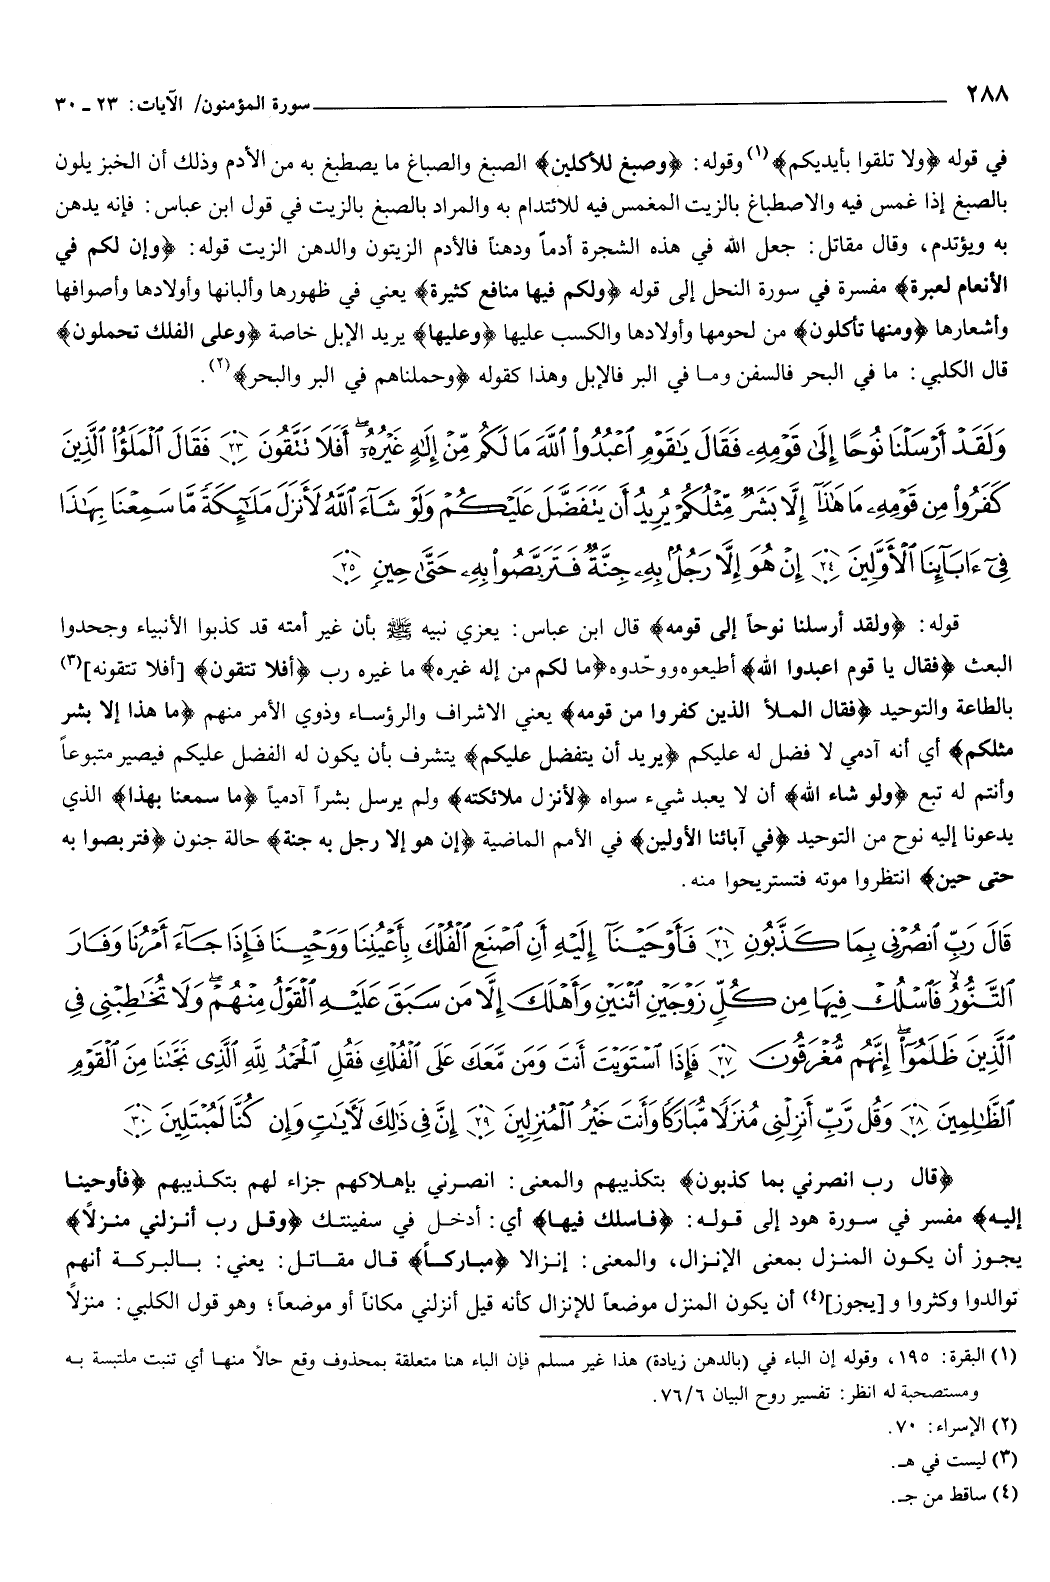 ٢٨٨ سورة المؤمنون/ الآيات: ٢٣ ـ ٣٠
في قوله ﴿ولا تلقوا بأيديكم﴾(١) وقوله: ﴿وصبغ للأكلين﴾ الصبغ والصباغ ما يصطبغ به من الأدم وذلك أن الخبز يلون
بالصبغ إذا غمس فيه والاصطباغ بالزيت المغمس فيه للائتدام به والمراد بالصبغ بالزيت في قول ابن عباس: فإنه يدهن
به ويؤتدم، وقال مقاتل: جعل الله في هذه الشجرة أدماً ودهناً فالأدم الزيتون والدهن الزيت قوله: ﴿وإن لكم في
الأنعام لعبرة﴾ مفسرة في سورة النحل إلى قوله ﴿ولكم فيها منافع كثيرة﴾ يعني في ظهورها وألبانها وأولادها وأصوافها
وأشعارها ﴿ومنها تأكلون﴾ من لحومها وأولادها والكسب عليها ﴿وعليها﴾ يريد الإبل خاصة ﴿وعلى الفلك تحملون﴾
قال الكلبي: ما في البحر فالسفن وما في البر فالإبل وهذا كقوله ﴿وحملناهم في البر والبحر﴾(٢).
وَلَقَدْ أَرْسَلْنَا نُوحًا إِلَىٰ قَوْمِهِۦ فَقَالَ يَـٰقَوْمِ ٱعْبُدُواْ ٱللَّهَ مَا لَكُم مِّنْ إِلَـٰهٍ غَيْرُهُۥٓ أَفَلَا تَتَّقُونَ ٢٣ فَقَالَ ٱلْمَلَؤُاْ ٱلَّذِينَ
كَفَرُواْ مِن قَوْمِهِۦ مَا هَـٰذَآ إِلَّا بَشَرٌ مِّثْلُكُمْ يُرِيدُ أَن يَتَفَضَّلَ عَلَيْكُمْ وَلَوْ شَآءَ ٱللَّهُ لَأَنزَلَ مَلَـٰٓئِكَةً مَّا سَمِعْنَا بِهَـٰذَا
فِىٓ ءَابَآئِنَا ٱلْأَوَّلِينَ ٢٤ إِنْ هُوَ إِلَّا رَجُلٌۢ بِهِۦ جِنَّةٌ فَتَرَبَّصُواْ بِهِۦ حَتَّىٰ حِينٍ ٢٥
قوله: ﴿ولقد أرسلنا نوحاً إلى قومه﴾ قال ابن عباس: يعزي نبيه ﷺ بأن غير أمته قد كذبوا الأنبياء وجحدوا
البعث ﴿فقال يا قوم اعبدوا الله﴾ أطيعوه ووحّدوه ﴿ما لكم من إله غيره﴾ ما غيره رب ﴿أفلا تتقون﴾ [أفلا تتقونه](٣)
بالطاعة والتوحيد ﴿فقال الملأ الذين كفروا من قومه﴾ يعني الاشراف والرؤساء وذوي الأمر منهم ﴿ما هذا إلا بشر
مثلكم﴾ أي أنه آدمي لا فضل له عليكم ﴿يريد أن يتفضل عليكم﴾ يتشرف بأن يكون له الفضل عليكم فيصير متبوعاً
وأنتم له تبع ﴿ولو شاء الله﴾ أن لا يعبد شيء سواه ﴿لأنزل ملائكته﴾ ولم يرسل بشراً آدمياً ﴿ما سمعنا بهذا﴾ الذي
يدعونا إليه نوح من التوحيد ﴿في آبائنا الأولين﴾ في الأمم الماضية ﴿إن هو إلا رجل به جنة﴾ حالة جنون ﴿فتربصوا به
حتى حين﴾ انتظروا موته فتستريحوا منه.
قَالَ رَبِّ ٱنصُرْنِى بِمَا كَذَّبُونِ ٢٦ فَأَوْحَيْنَآ إِلَيْهِ أَنِ ٱصْنَعِ ٱلْفُلْكَ بِأَعْيُنِنَا وَوَحْيِنَا فَإِذَا جَآءَ أَمْرُنَا وَفَارَ
ٱلتَّنُّورُ فَٱسْلُكْ فِيهَا مِن كُلٍّ زَوْجَيْنِ ٱثْنَيْنِ وَأَهْلَكَ إِلَّا مَن سَبَقَ عَلَيْهِ ٱلْقَوْلُ مِنْهُمْ وَلَا تُخَـٰطِبْنِى فِى
ٱلَّذِينَ ظَلَمُوٓاْ إِنَّهُم مُّغْرَقُونَ ٢٧ فَإِذَا ٱسْتَوَيْتَ أَنتَ وَمَن مَّعَكَ عَلَى ٱلْفُلْكِ فَقُلِ ٱلْحَمْدُ لِلَّهِ ٱلَّذِى نَجَّىٰنَا مِنَ ٱلْقَوْمِ
ٱلظَّـٰلِمِينَ ٢٨ وَقُل رَّبِّ أَنزِلْنِى مُنزَلًا مُّبَارَكًا وَأَنتَ خَيْرُ ٱلْمُنزِلِينَ ٢٩ إِنَّ فِى ذَٰلِكَ لَـَٔايَـٰتٍ وَإِن كُنَّا لَمُبْتَلِينَ ٣٠
﴿قال رب انصرني بما كذبون﴾ بتكذيبهم والمعنى: انصرني بإهلاكهم جزاء لهم بتكذيبهم ﴿فأوحينا
إليه﴾ مفسر في سورة هود إلى قوله: ﴿فاسلك فيها﴾ أي: أدخل في سفينتك ﴿وقل رب أنزلني منزلاً﴾
يجوز أن يكون المنزل بمعنى الإنزال، والمعنى: إنزالا ﴿مباركاً﴾ قال مقاتل: يعني: بالبركة أنهم
توالدوا وكثروا و [يجوز](٤) أن يكون المنزل موضعاً للإنزال كأنه قيل أنزلني مكاناً أو موضعاً؛ وهو قول الكلبي: منزلاً
(١) البقرة: ١٩٥، وقوله إن الباء في (بالدهن زيادة) هذا غير مسلم فإن الباء هنا متعلقة بمحذوف وقع حالاً منها أي تنبت ملتبسة به
ومستصحبة له انظر: تفسير روح البيان ٧٦/٦.
(٢) الإسراء: ٧٠.
(٣) ليست في هـ.
(٤) ساقط من جـ.